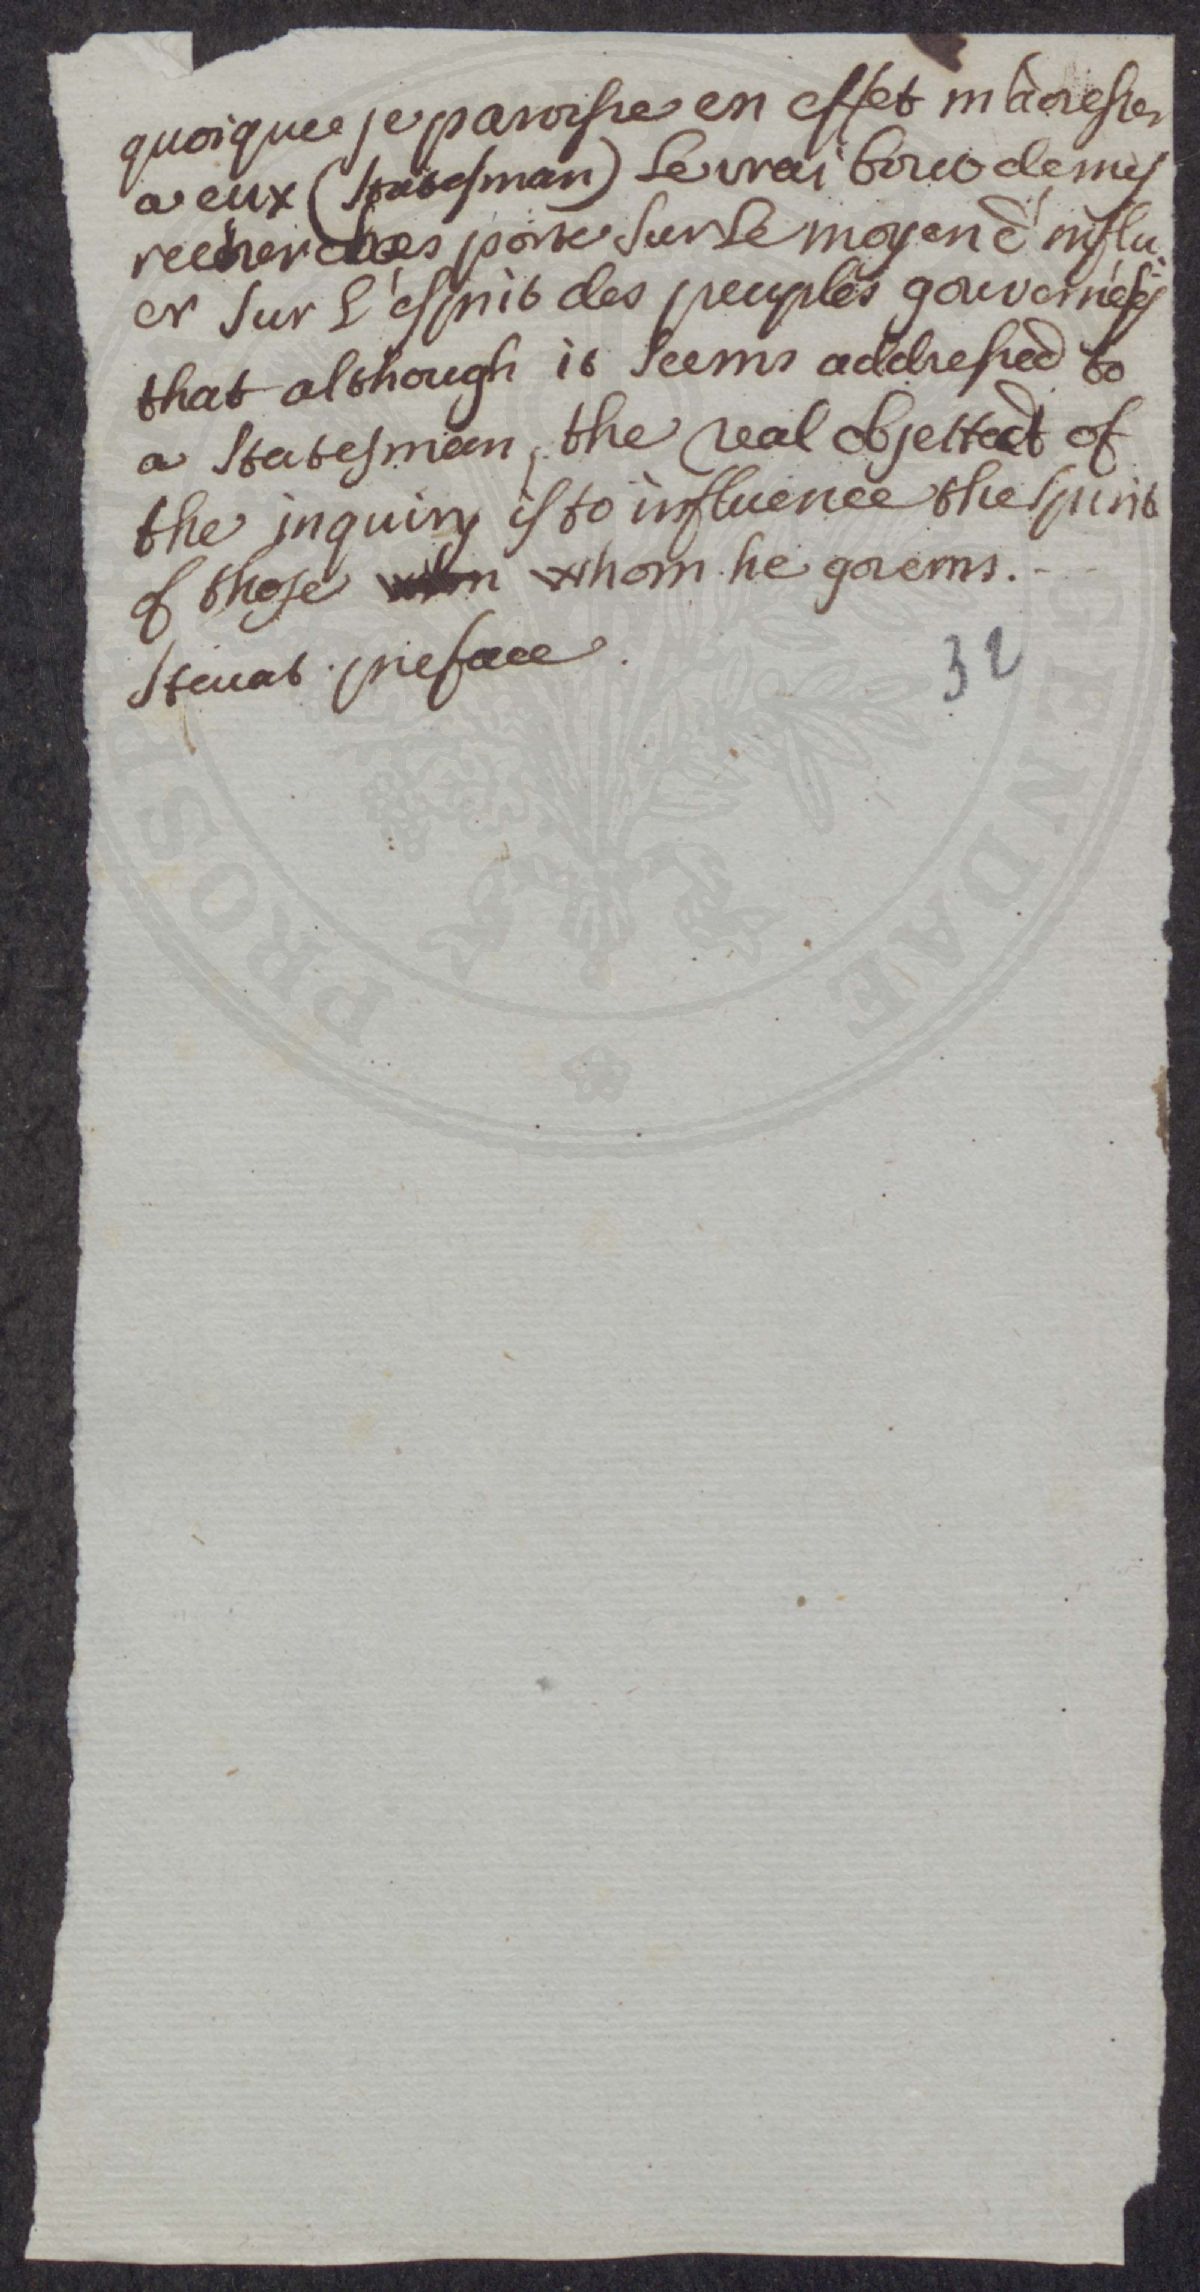 quoique je paroisse en effet m'adresser
a eux (Statesman) le vrai bout de mes
recherches porte sur le moyen d'influ
er sur l'esprit des peuples gouvernés
that although it seems addressed to
a Statesman, the real object of
the inquiry is to influence the spirit
of those whom he governs. - -
Steuart preface.
32
PROSP GENDAE